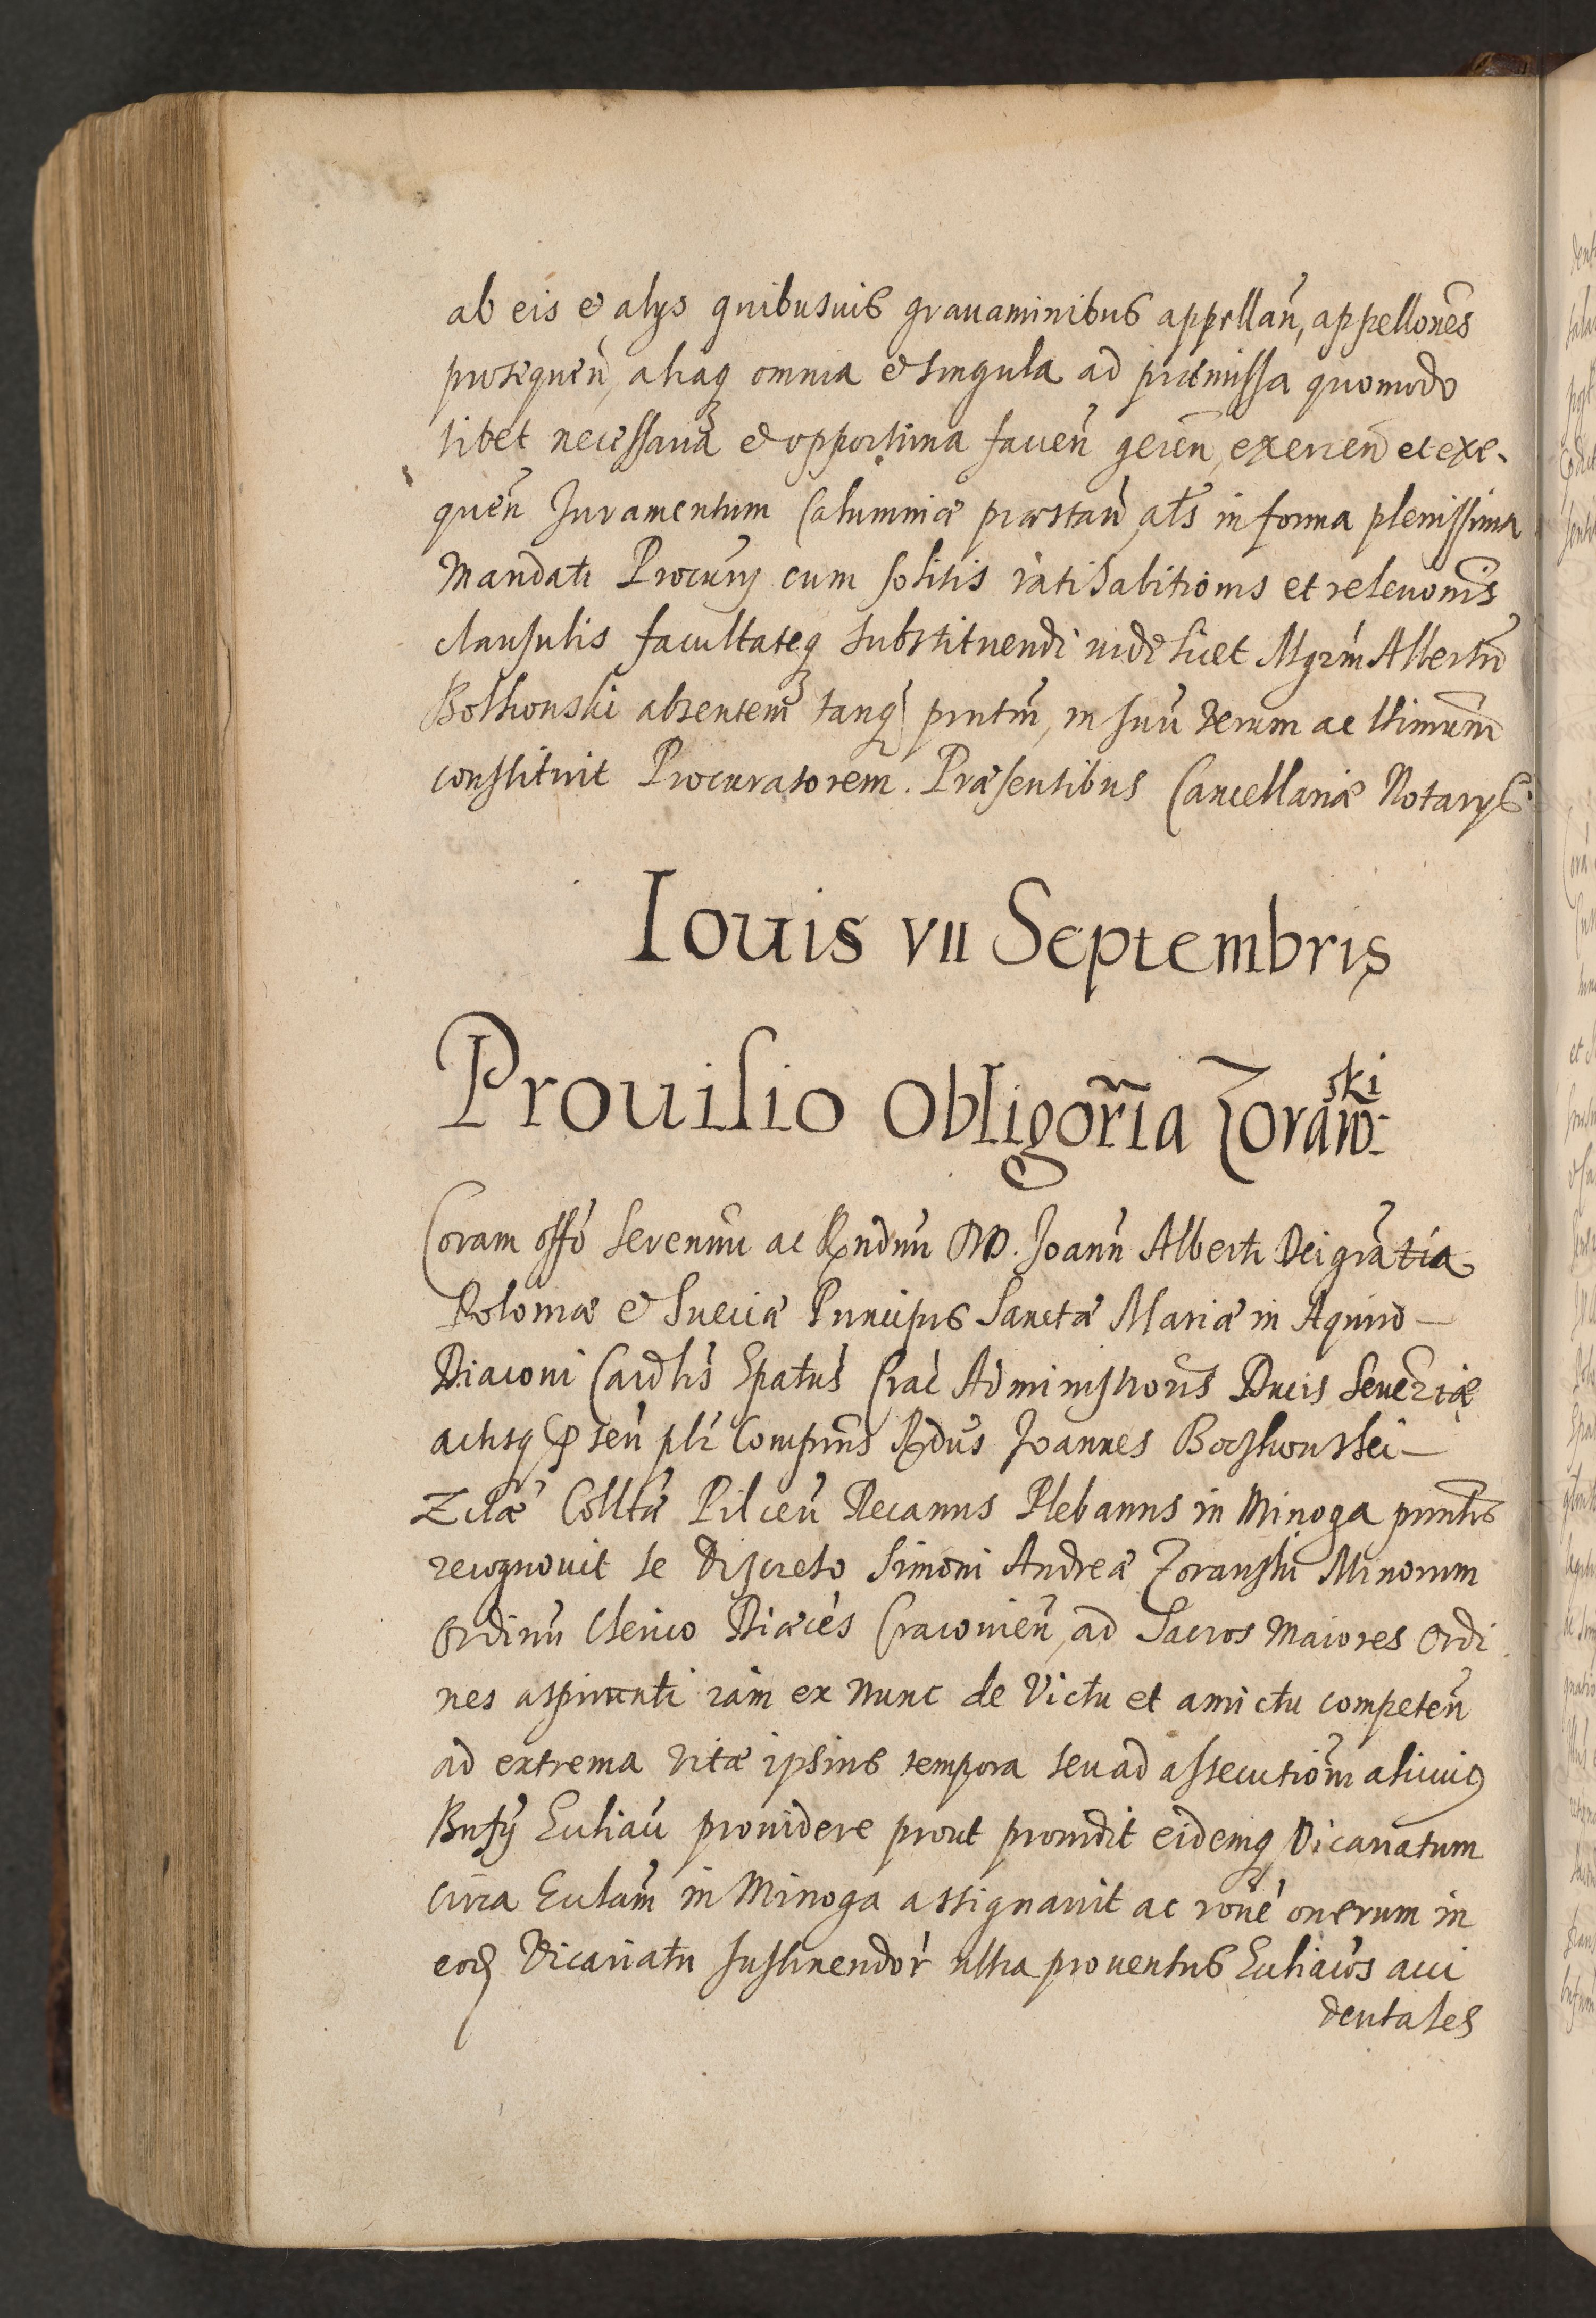 ab eis et alijs quibusuis grauaminibus appellan̄, appellōnes
prosequen̄, aliaq̨ omnia et singula ad præmissa quomodo
libet necessaria et opportuna facien̄ geren̄, exercen̄ et exe-
quen̄ Juramentum Calumniæ præstan̄, al̄s in forma plenissima
Mandati Procur̄ij cum solitis ratihabitionis et releuōnis
clausulis facultateq̨ substituendi videlicet Mgr̄m Albertū
Bolhonski absentem tanq̨ pn̄tm̄, in suū verum ac ltimum̄
constituit Procuratorem. Præsentibus Cancellariæ Notarijs.
Iouis VII Septembris
Prouisio Obligor̄ia Zoraw-
ski
Coram off̄o Serenmi ac Rndm̄i DD. Joann̄ Alberti Dei grātia
Poloniæ et Sueciæ Principis Sanctæ Mariæ in Aquiro
Diaconi Cardlis̄ Ep̄atus̄ Crac̄ Administrōris Ducis Seueriæ
actisq̨ p̄sen̄ pl̄r Compn̄s Rdus̄ Joannes
Collt̄æ Pilcen̄ Decanus Plebanus in Minoga pn̄nlis
recognouit se Discreto Simoni Andreæ Zorauski Minorum
Ordinū Clerico Diæces̄ Cracouien̄, ad Sacros Maiores Ordi
nes aspiranti iam ex nunc de Victu et amictu competen̄
ad extrema vitæ ipsius tempora seu ad assecutiōm alicuiꝯ
Bnf̄ij Eccliaci̅ prouidere prout prouidit eidemq̨ Vicariatum
circa Eccl̄am in Minoga assignauit ac rōne onerum in
eod̨ Vicariatu sustinendor̄ ultra prouentus Eccliac̄os acci
dentales